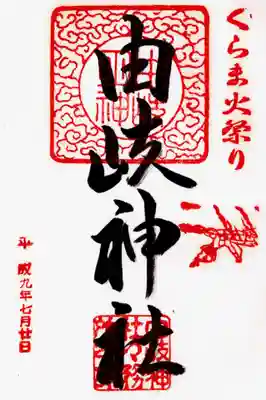 くらま火祭り
由岐神社
平成九年七月廿日